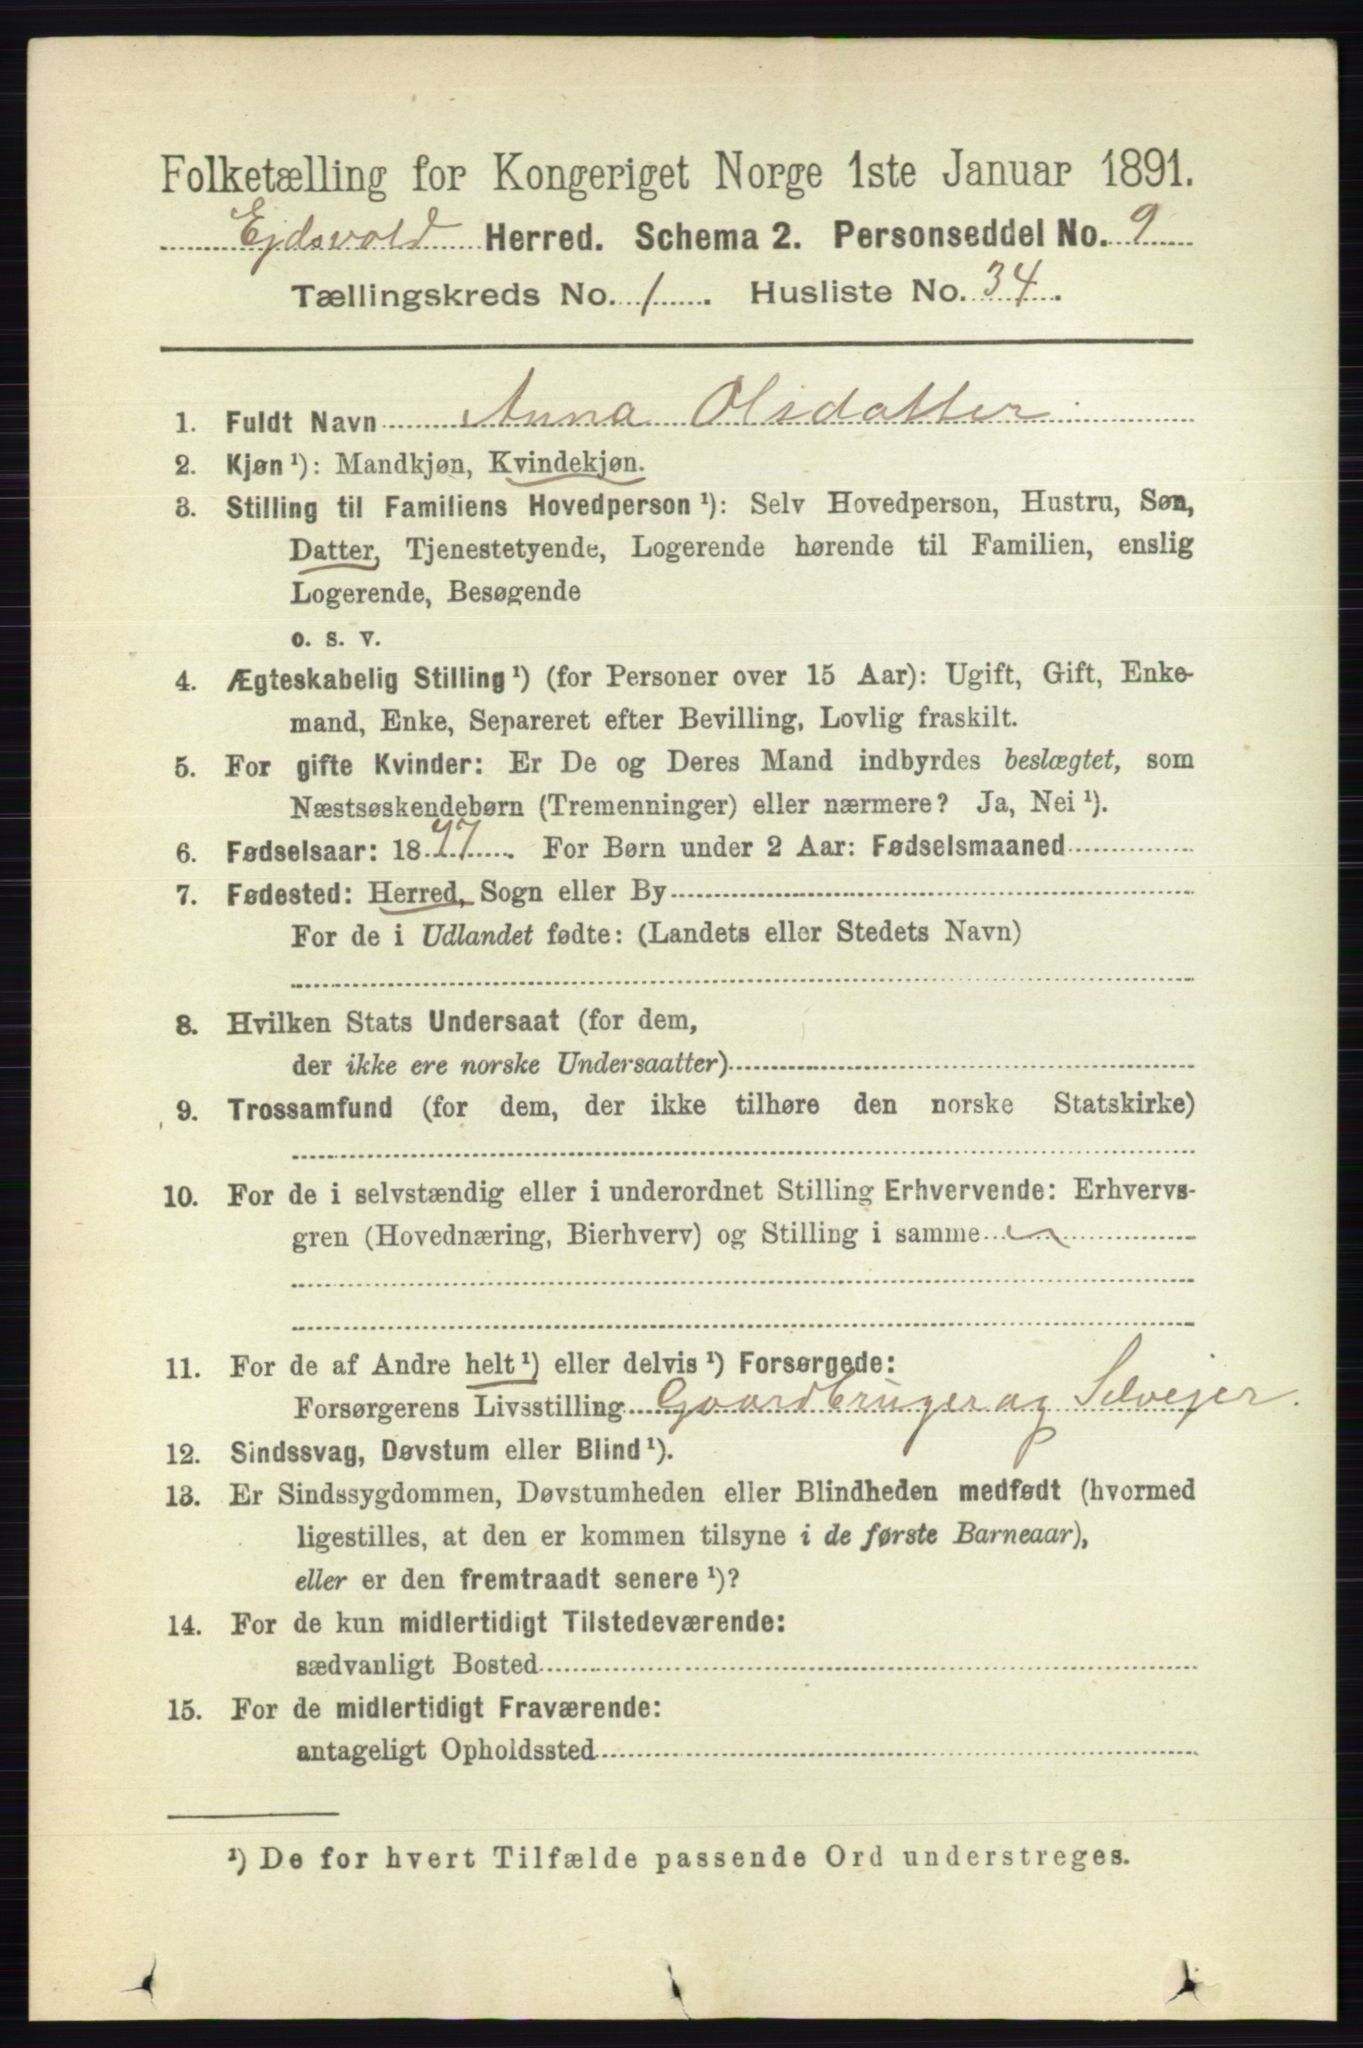 Folketælling for Kongeriget Norge 1ste Januar 1891.
Ejdsvold Herred. Schema 2. Personseddel No. 9
Tællingskreds No. 1. Husliste No. 34.
1. Fuldt Navn Anna Olsdatter
2. Kjøn ¹): Mandkjøn, Kvindekjøn.
3. Stilling til Familiens Hovedperson ¹): Selv Hovedperson, Hustru, Søn,
Datter, Tjenestetyende, Logerende hørende til Familien, enslig
Logerende, Besøgende
o. s. v.
4. Ægteskabelig Stilling ¹) (for Personer over 15 Aar): Ugift, Gift, Enke-
mand, Enke, Separeret efter Bevilling, Lovlig fraskilt.
5. For gifte Kvinder: Er De og Deres Mand indbyrdes beslægtet, som
Næstsøskendebørn (Tremenninger) eller nærmere? Ja, Nei ¹).
6. Fødselsaar: 1877. For Børn under 2 Aar: Fødselsmaaned
7. Fødested: Herred, Sogn eller By
For de i Udlandet fødte: (Landets eller Stedets Navn)
8. Hvilken Stats Undersaat (for dem,
der ikke ere norske Undersaatter)
9. Trossamfund (for dem, der ikke tilhøre den norske Statskirke)
10. For de i selvstændig eller i underordnet Stilling Erhvervende: Erhvervs-
gren (Hovednæring, Bierhverv) og Stilling i samme
11. For de af Andre helt ¹) eller delvis ¹) Forsørgede:
Forsørgerens Livsstilling Gaardbruger og Selvejer.
12. Sindssvag, Døvstum eller Blind ¹).
13. Er Sindssygdommen, Døvstumheden eller Blindheden medfødt (hvormed
ligestilles, at den er kommen tilsyne i de første Barneaar),
eller er den fremtraadt senere ¹)?
14. For de kun midlertidigt Tilstedeværende:
sædvanligt Bosted
15. For de midlertidigt Fraværende:
antageligt Opholdssted
¹) De for hvert Tilfælde passende Ord understreges.